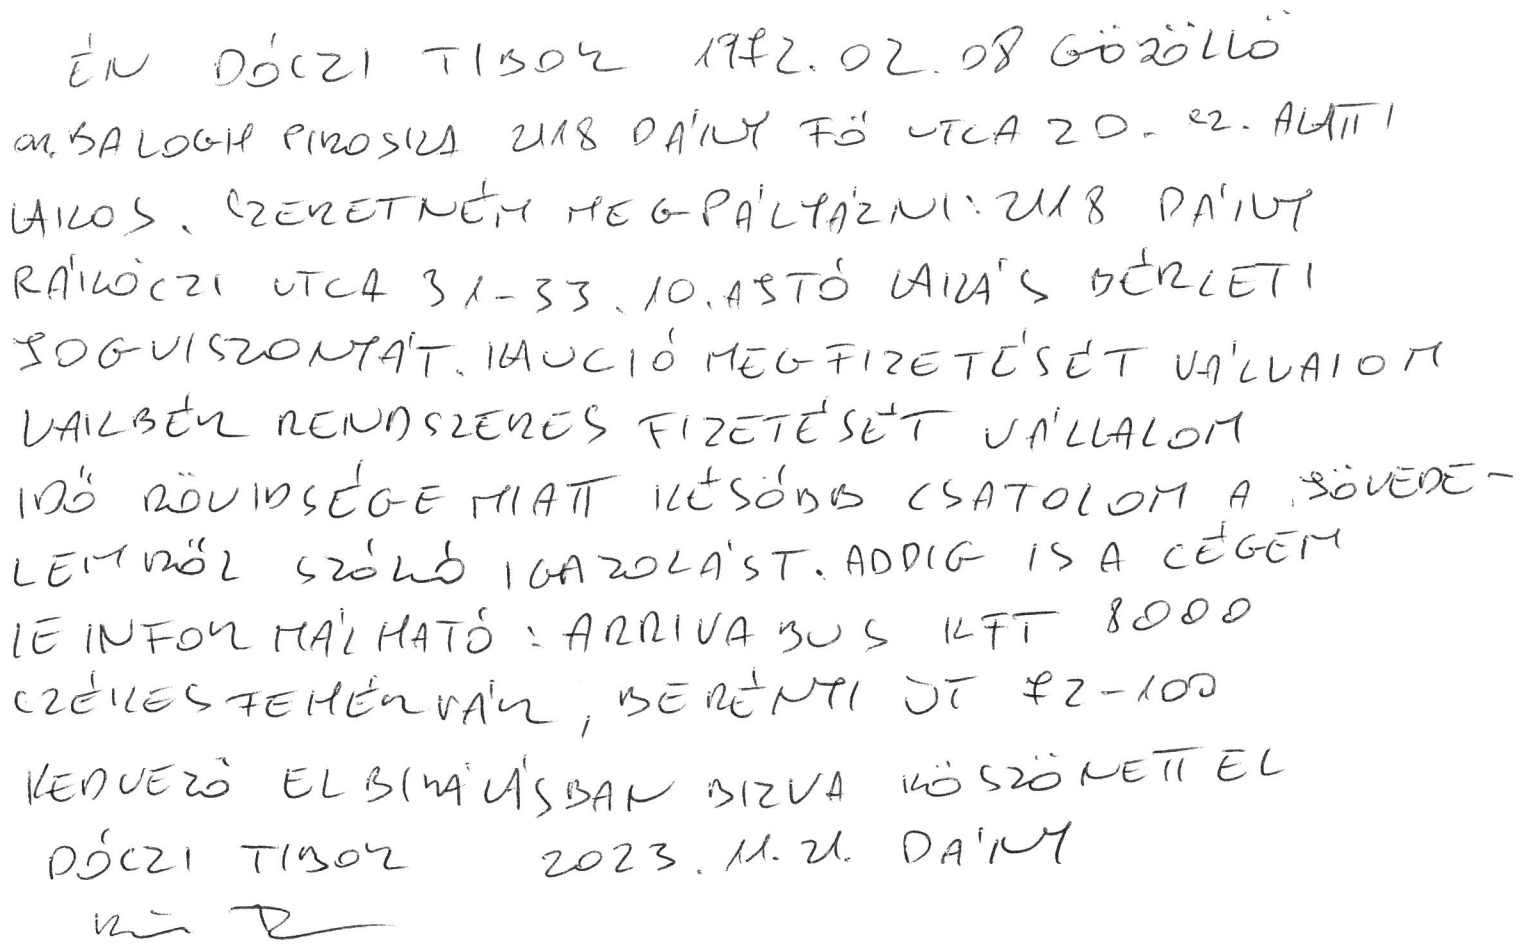 ÉN DÓCZI TIBOR 1972.02.08 GÖDÖLLŐ
an. BALOGH PIROSKA 2118 DÁNY FŐ UTCA 20. SZ. ALATTI
LAKOS. SZERETNÉM MEGPÁLYÁZNI: 2118 DÁNY
RÁKÓCZI UTCA 31-33. 10. AJTÓ LAKÁS BÉRLETI
JOGVISZONYÁT. KAUCIÓ MEGFIZETÉSÉT VÁLLALOM
LAKBÉR RENDSZERES FIZETÉSÉT VÁLLALOM
IDŐ RÖVIDSÉGE MIATT KÉSÖBB CSATOLOM A JÖVEDE-
LEMRŐL SZÓLÓ IGAZOLÁST. ADDIG IS A CÉGEM
LE INFORMÁLHATÓ: ARRIVA BUS KFT 8000
SZÉKESFEHÉRVÁR, BERÉNYI ÚT 72-100
KEDVEZŐ ELBIRÁLÁSBAN BIZVA KÖSZÖNETTEL
DÓCZI TIBOR 2023.11.21. DÁNY